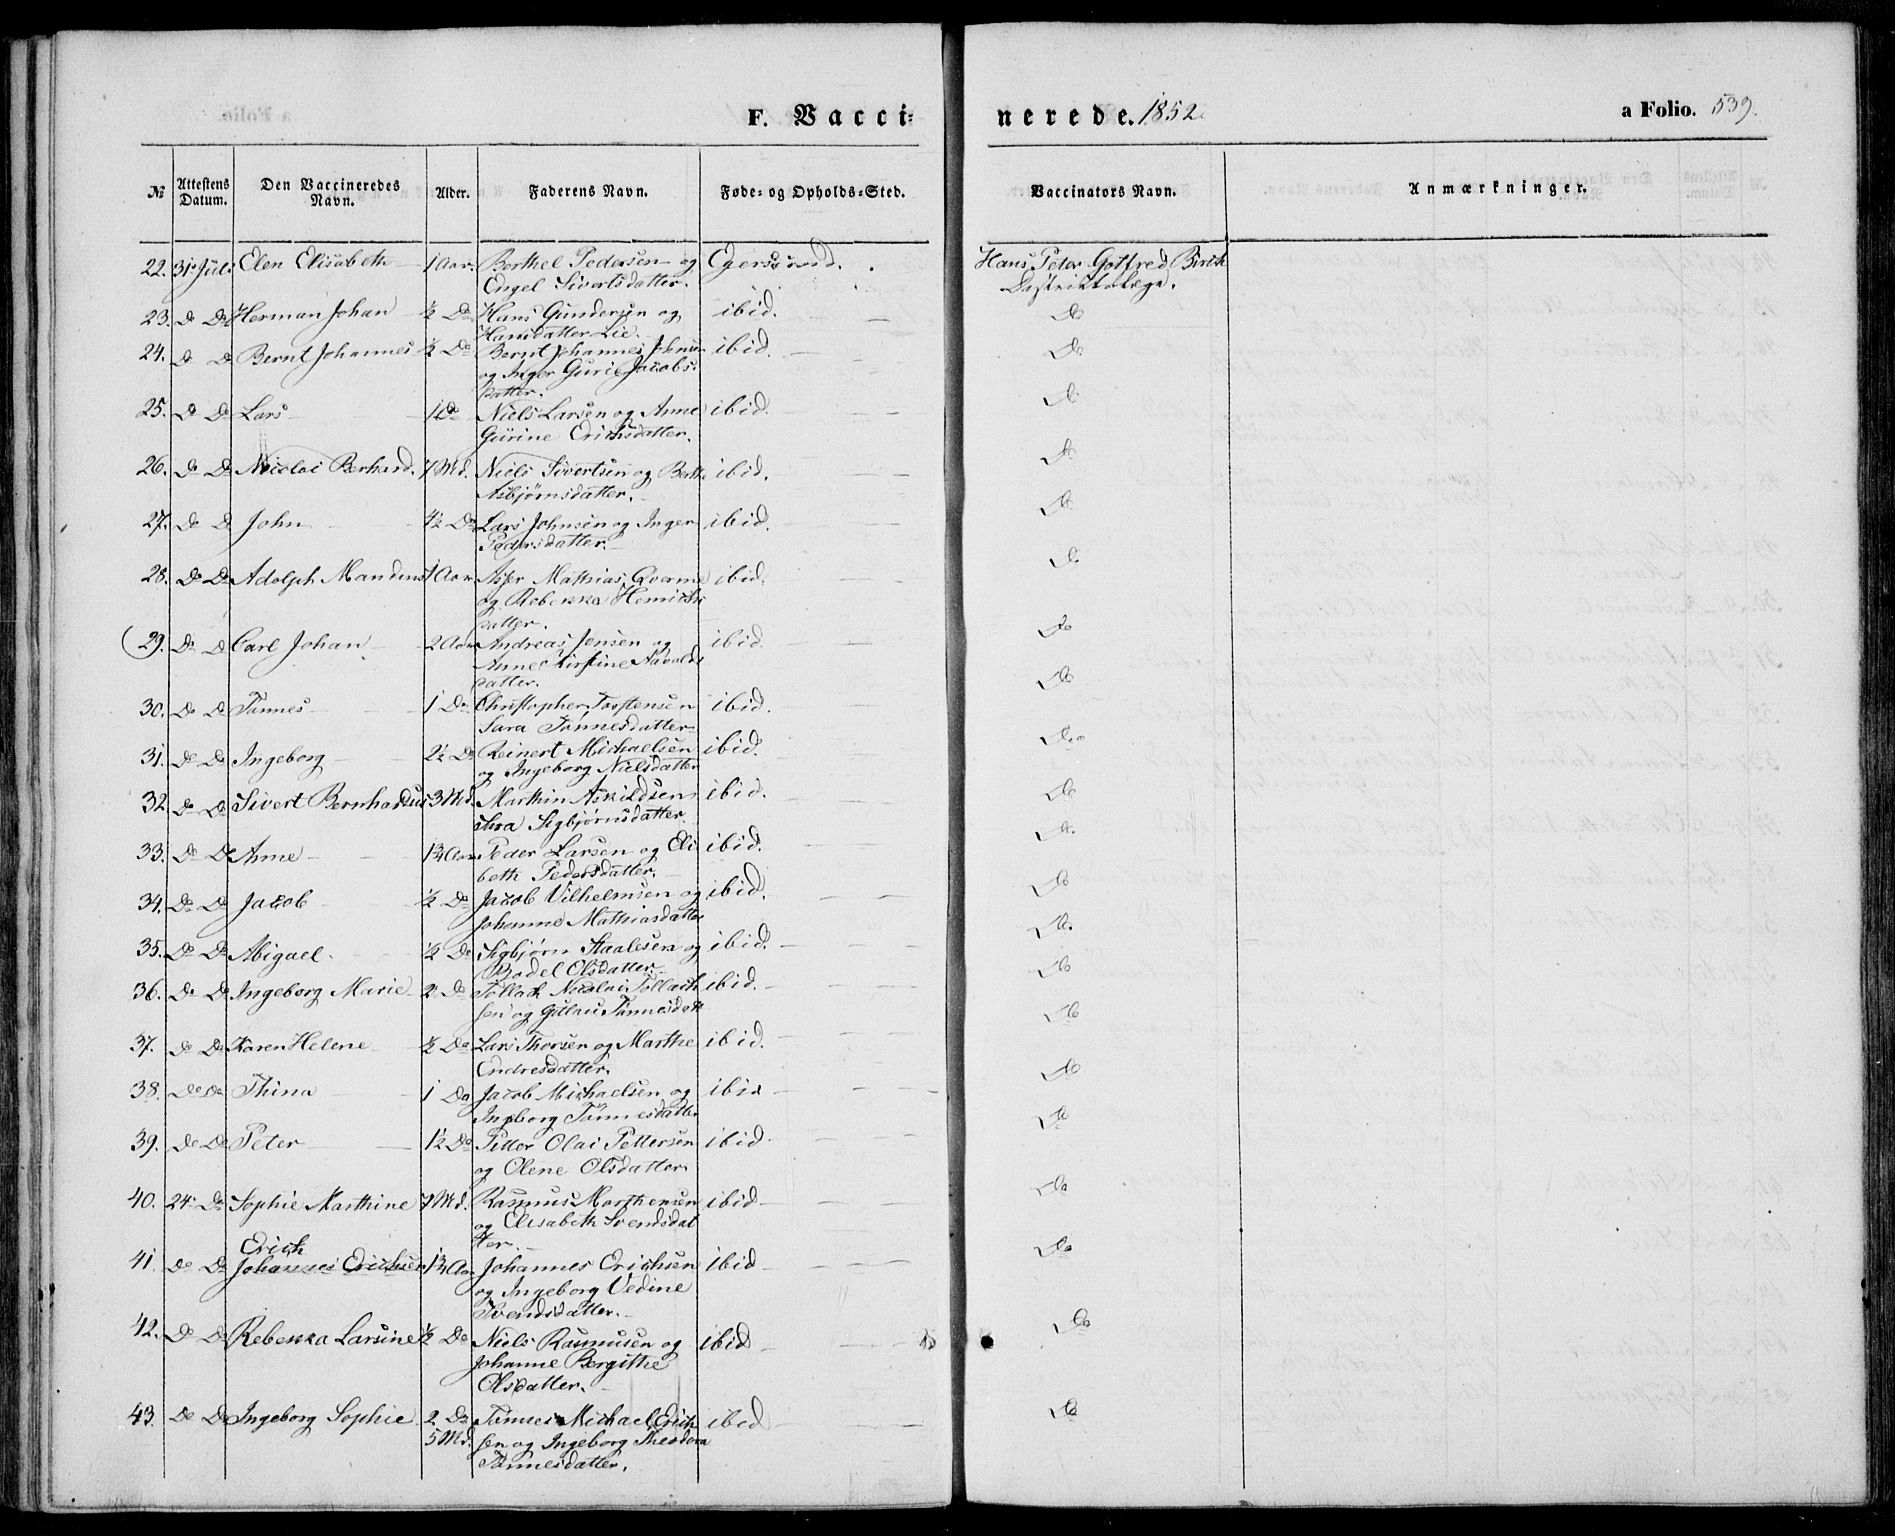 F. Vacci-
nerede. 1852.
a Folio. 539.
№ Attestens Datum. Den Vaccineredes Navn. Alder. Faderens Navn. Føde- og Opholds-Sted. Vaccinators Navn. Anmærkninger.
22. 31. Juli Elen Elisabeth 1 Aar. Berthel Pedersen og Egersund. Hans Peter Gotfred Birch
Engel Sivertsdatter. Distriktslæge.
23. Do Do Herman Johan ½ Do Hans Gundersen og ibid. Do
Hansdatter Lie.
24. Do Do Bernt Johannes ½ Do Bernt Johannes Johnsen ibid. Do
og Inger Gurie Jacobs-
datter.
25. Do Do Lars 1 Do Niels Larsen og Anne ibid. Do
Gürine Erichsdatter.
26. Do Do Nicolai Berhard. 7 Md. Niels Sivertsen og Berthe ibid. Do
Asbjørnsdatter.
27. Do Do John 4½ Do Lars Johnsen og Inger ibid. Do
Pedersdatter.
28. Do Do Adolph Mandius 1 Aar Asser Mathias Qverme ibid. Do
og Rebekka Henrichs
datter.
29. Do Do Carl Johan 2 Aar Andreas Jensen og ibid. Do
Anne Kirstine Aavalds
datter.
30. Do Do Tønnes 1 Do Christopher Torstensen ibid. Do
Sara Tønnesdatter
31. Do Do Ingeborg 2½ Do Reinert Michaelsen ibid. Do
og Ingeborg Nielsdatter
32. Do Do Sivert Bernhardus 3 Md. Marthin Askildsen ibid. Do
Sigbjørnsdatter.
33. Do Do Anne 1¾ Aar Peder Larsen og Eli ibid. Do
beth Pedersdatter.
34. Do Do Jacob ½ Do Jacob Vilhelmsen og ibid. Do
Johanne Mathiasdatter
35. Do Do Abigael. ½ Do Sigbjørn Staalesen og ibid. Do
Bodel Olsdatter.
36. Do Do Ingeborg Marie 2 Do Tollach Nicolai Tollach ibid. Do
sen og Tønnesdatt
37. Do Do Karen Helene ½ Do Lars Thorsen og Marthe ibid. Do
Endresdatter.
38. Do Do Thina 1 Do Jacob Michaelsen og ibid Do
Ingborg Tønnesdatter
39. Do Do Peter 1½ Do Petter Olai Pettersen ibid. Do
og Olene Olsdatter.
40. 24. Do Sophie Marthine 7 Md. Rasmus Marthensen ibid Do
og Elisabeth Svendsdat
ter.
Erich
41. Do Do Johannes Erichsen 1¾ Aar Johannes Erichsen ibid Do
og Ingeborg Vedine
Svendsdatter.
42. Do Do Rebekka Larsine ½ Do Niels Rasmusen og ibid Do
Johanne Bergithe
Olsdatter.
43. Do Do Ingeborg Sophie 2 Do Tønnes Michael Erich ibid Do
5 Md. sen og Ingeborg Theodora
Tønnesdatter.